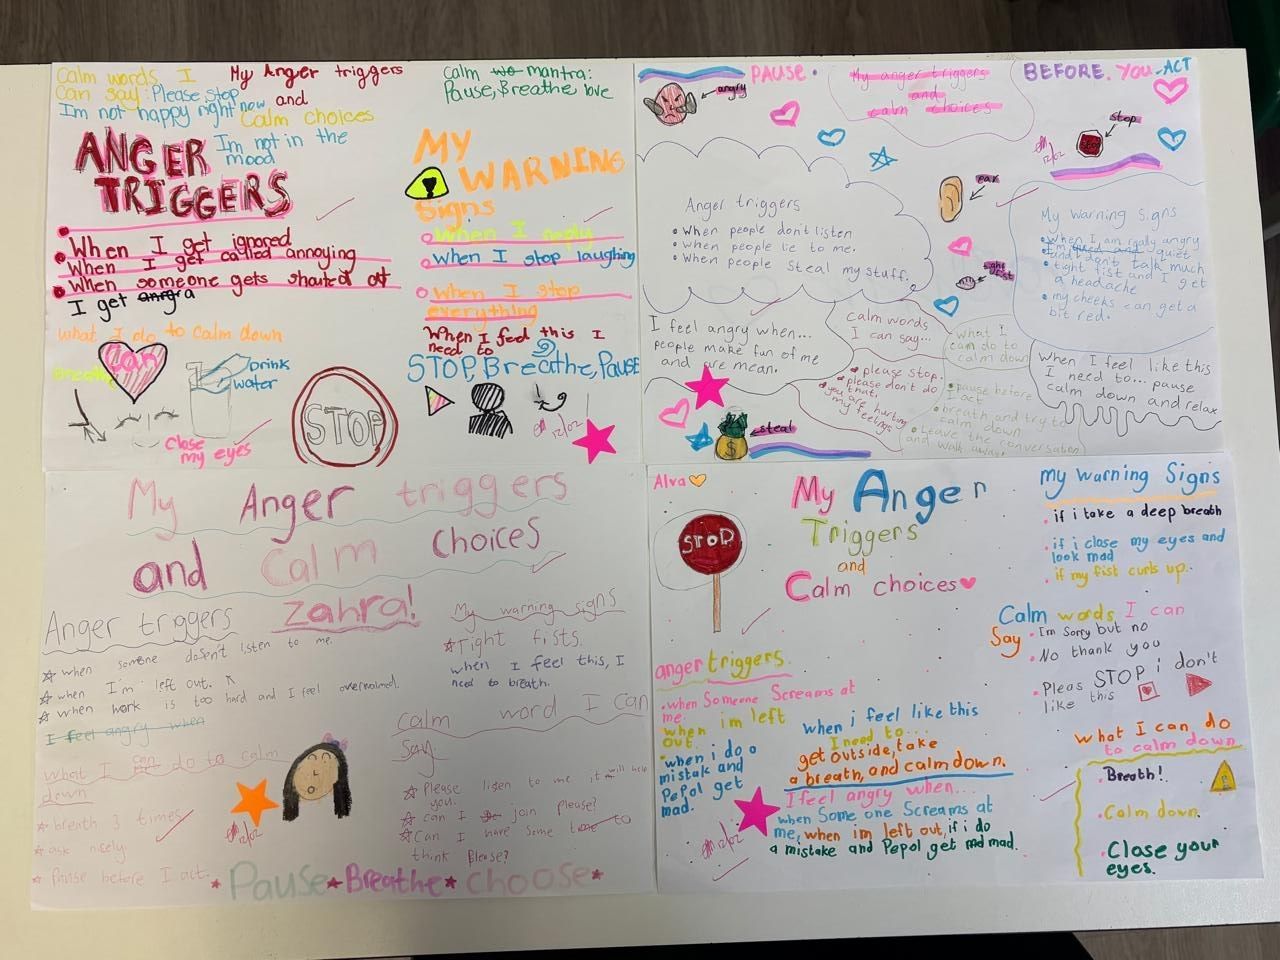 Calm words I
Can say: Please stop
Im not happy right now
My Anger triggers
and
Calm choices
Im not in the
mood
ANGER
TRIGGERS
When I get ignored
When I get called annoying
When someone gets shouted at
I get a
what I do to Calm down
Breathe
Drink
water
Close
my eyes
STOP
Calm mantra:
Pause, Breathe, love
MY
WARNING
Signs
When I reply
when I stop laughing
When I stop
everything
When I feel this I
need to
STOP, Breathe, Pause
12/02
PAUSE.
My anger triggers
and
calm choices
BEFORE. YOU. ACT
angry
stop
STOP
12/02
ear
tight
fist
Anger triggers
• When people don't listen
• When people lie to me.
• When people steal my stuff.
My Warning Signs
• When I am really angry
I'm quiet
and I don't talk much
• tight fist and I get
a headache
• my cheeks can get a
bit red.
I feel angry when...
people make fun of me
and are mean.
Calm words
I can say...
• please stop.
• please don't do
that.
you are hurting
my feelings
what I
can do to
calm down
• pause before
I act
• breath and try to
calm down
• Leave the conversation
and walk away.
When I feel like this
I need to... pause
calm down and relax
steal
My Anger triggers
and Calm Choices
zahra!
Anger triggers
when someone doesn't listen to me.
when I'm left out.
when work is too hard and I feel overwolmed.
I feel angry when
What I can do to calm
down
breath 3 times
ask nicely
Pause before I act.
12/02
My warning signs
Tight fists.
when I feel this, I
need to breath.
Calm word I can
say:
Please listen to me it will help
you.
can I join please?
Can I have some time to
think Please?
Pause Breathe choose
Alva
STOP
My Anger
Triggers
and
Calm choices
my Warning Signs
• if i take a deep breath
• if i close my eyes and
look mad
• if my fist curls up.
Calm words I can
Say
• Im Sorry but no
• No thank you
• Pleas STOP i don't
like this
anger triggers.
• when Someone Screams at
me.
when im left
out.
• when i do a
mistak and
PePol get
mad.
when i feel like this
I need to...
get outside, take
a breath, and calm down.
I feel angry when...
when Some one Screams at
me, when im left out, if i do
a mistake and Pepol get mad.
12/02
What I can do
to calm down
• Breath!
• Calm down.
• Close your
eyes.